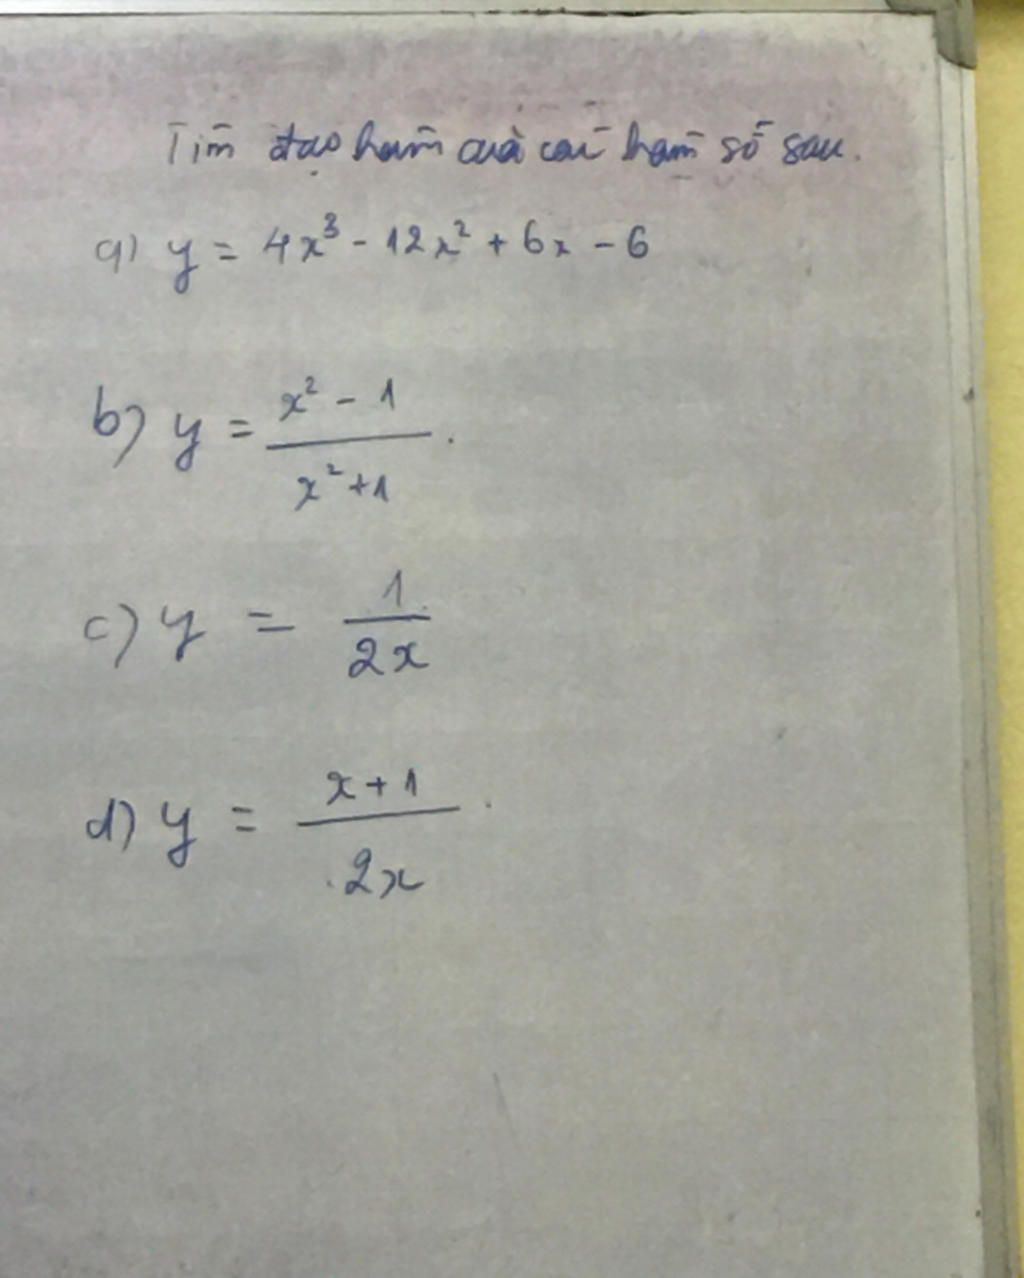 Tìm đạo hàm của các hàm số sau.
a) y = 4x³ - 12x² + 6x - 6
b) y = (x² - 1)/(x² + 1).
c) y = 1/(2x)
d) y = (x + 1)/(2x).